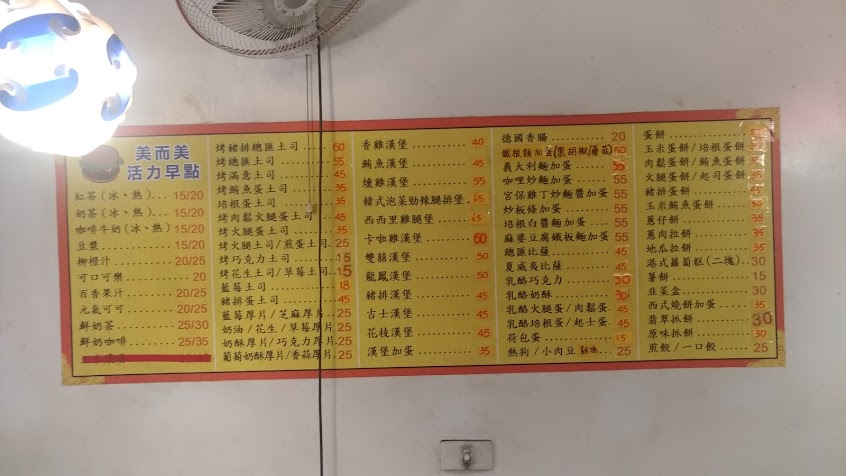 美而美
活力早點
紅茶(冰、熱)... 15/20
奶茶(冰、熱)... 15/20
咖啡牛奶(冰、熱) 15/20
豆漿 15/20
柳橙汁 20/25
可口可樂 20
百香果汁 20/25
元氣可可 20/25
鮮奶茶 25/30
鮮奶咖啡 25/35
烤豬排總匯土司 60
烤總匯土司 55
烤滿意土司 45
烤鮪魚蛋土司 35
培根蛋土司 35
烤肉鬆火腿蛋土司 45
烤火腿蛋土司 35
烤火腿土司/煎蛋土司 25
烤巧克力土司 15
烤花生土司/草莓土司 15
藍莓土司 18
豬排蛋土司 45
藍莓厚片/芝麻厚片 25
奶油/花生/草莓厚片 25
奶酥厚片/巧克力厚片 25
葡萄奶酥厚片/香蒜厚片 25
香雞漢堡 40
鮪魚漢堡 45
燻雞漢堡 55
韓式泡菜勁辣腿排堡 65
西西里雞腿堡 65
卡啦雞漢堡 60
雙囍漢堡 50
龍鳳漢堡 50
豬排漢堡 45
吉士漢堡 45
花枝漢堡 45
漢堡加蛋 35
德國香腸 20
鐵板麵加蛋(黑胡椒/蘑菇) 50
義大利麵加蛋 55
咖哩炒麵加蛋 55
宮保雞丁炒麵醬加蛋 55
炒板條加蛋 55
培根白醬麵加蛋 55
麻婆豆腐鐵板麵加蛋 55
總匯比薩 45
夏威夷比薩 45
乳酪巧克力 30
乳酪奶酥 30
乳酪火腿蛋/肉鬆蛋 45
乳酪培根蛋/起士蛋 45
荷包蛋 15
熱狗/小肉豆 25
蛋餅
玉米蛋餅/培根蛋餅
肉鬆蛋餅/鮪魚蛋餅
火腿蛋餅/起司蛋餅 35
豬排蛋餅 45
玉米鮪魚蛋餅 50
蔥仔餅 35
蔥肉拉餅 35
地瓜拉餅 35
港式蘿蔔糕(二塊) 30
薯餅 15
韭菜盒 30
西式燒餅加蛋 35
翡翠抓餅 30
原味抓餅 30
煎餃/一口餃 25